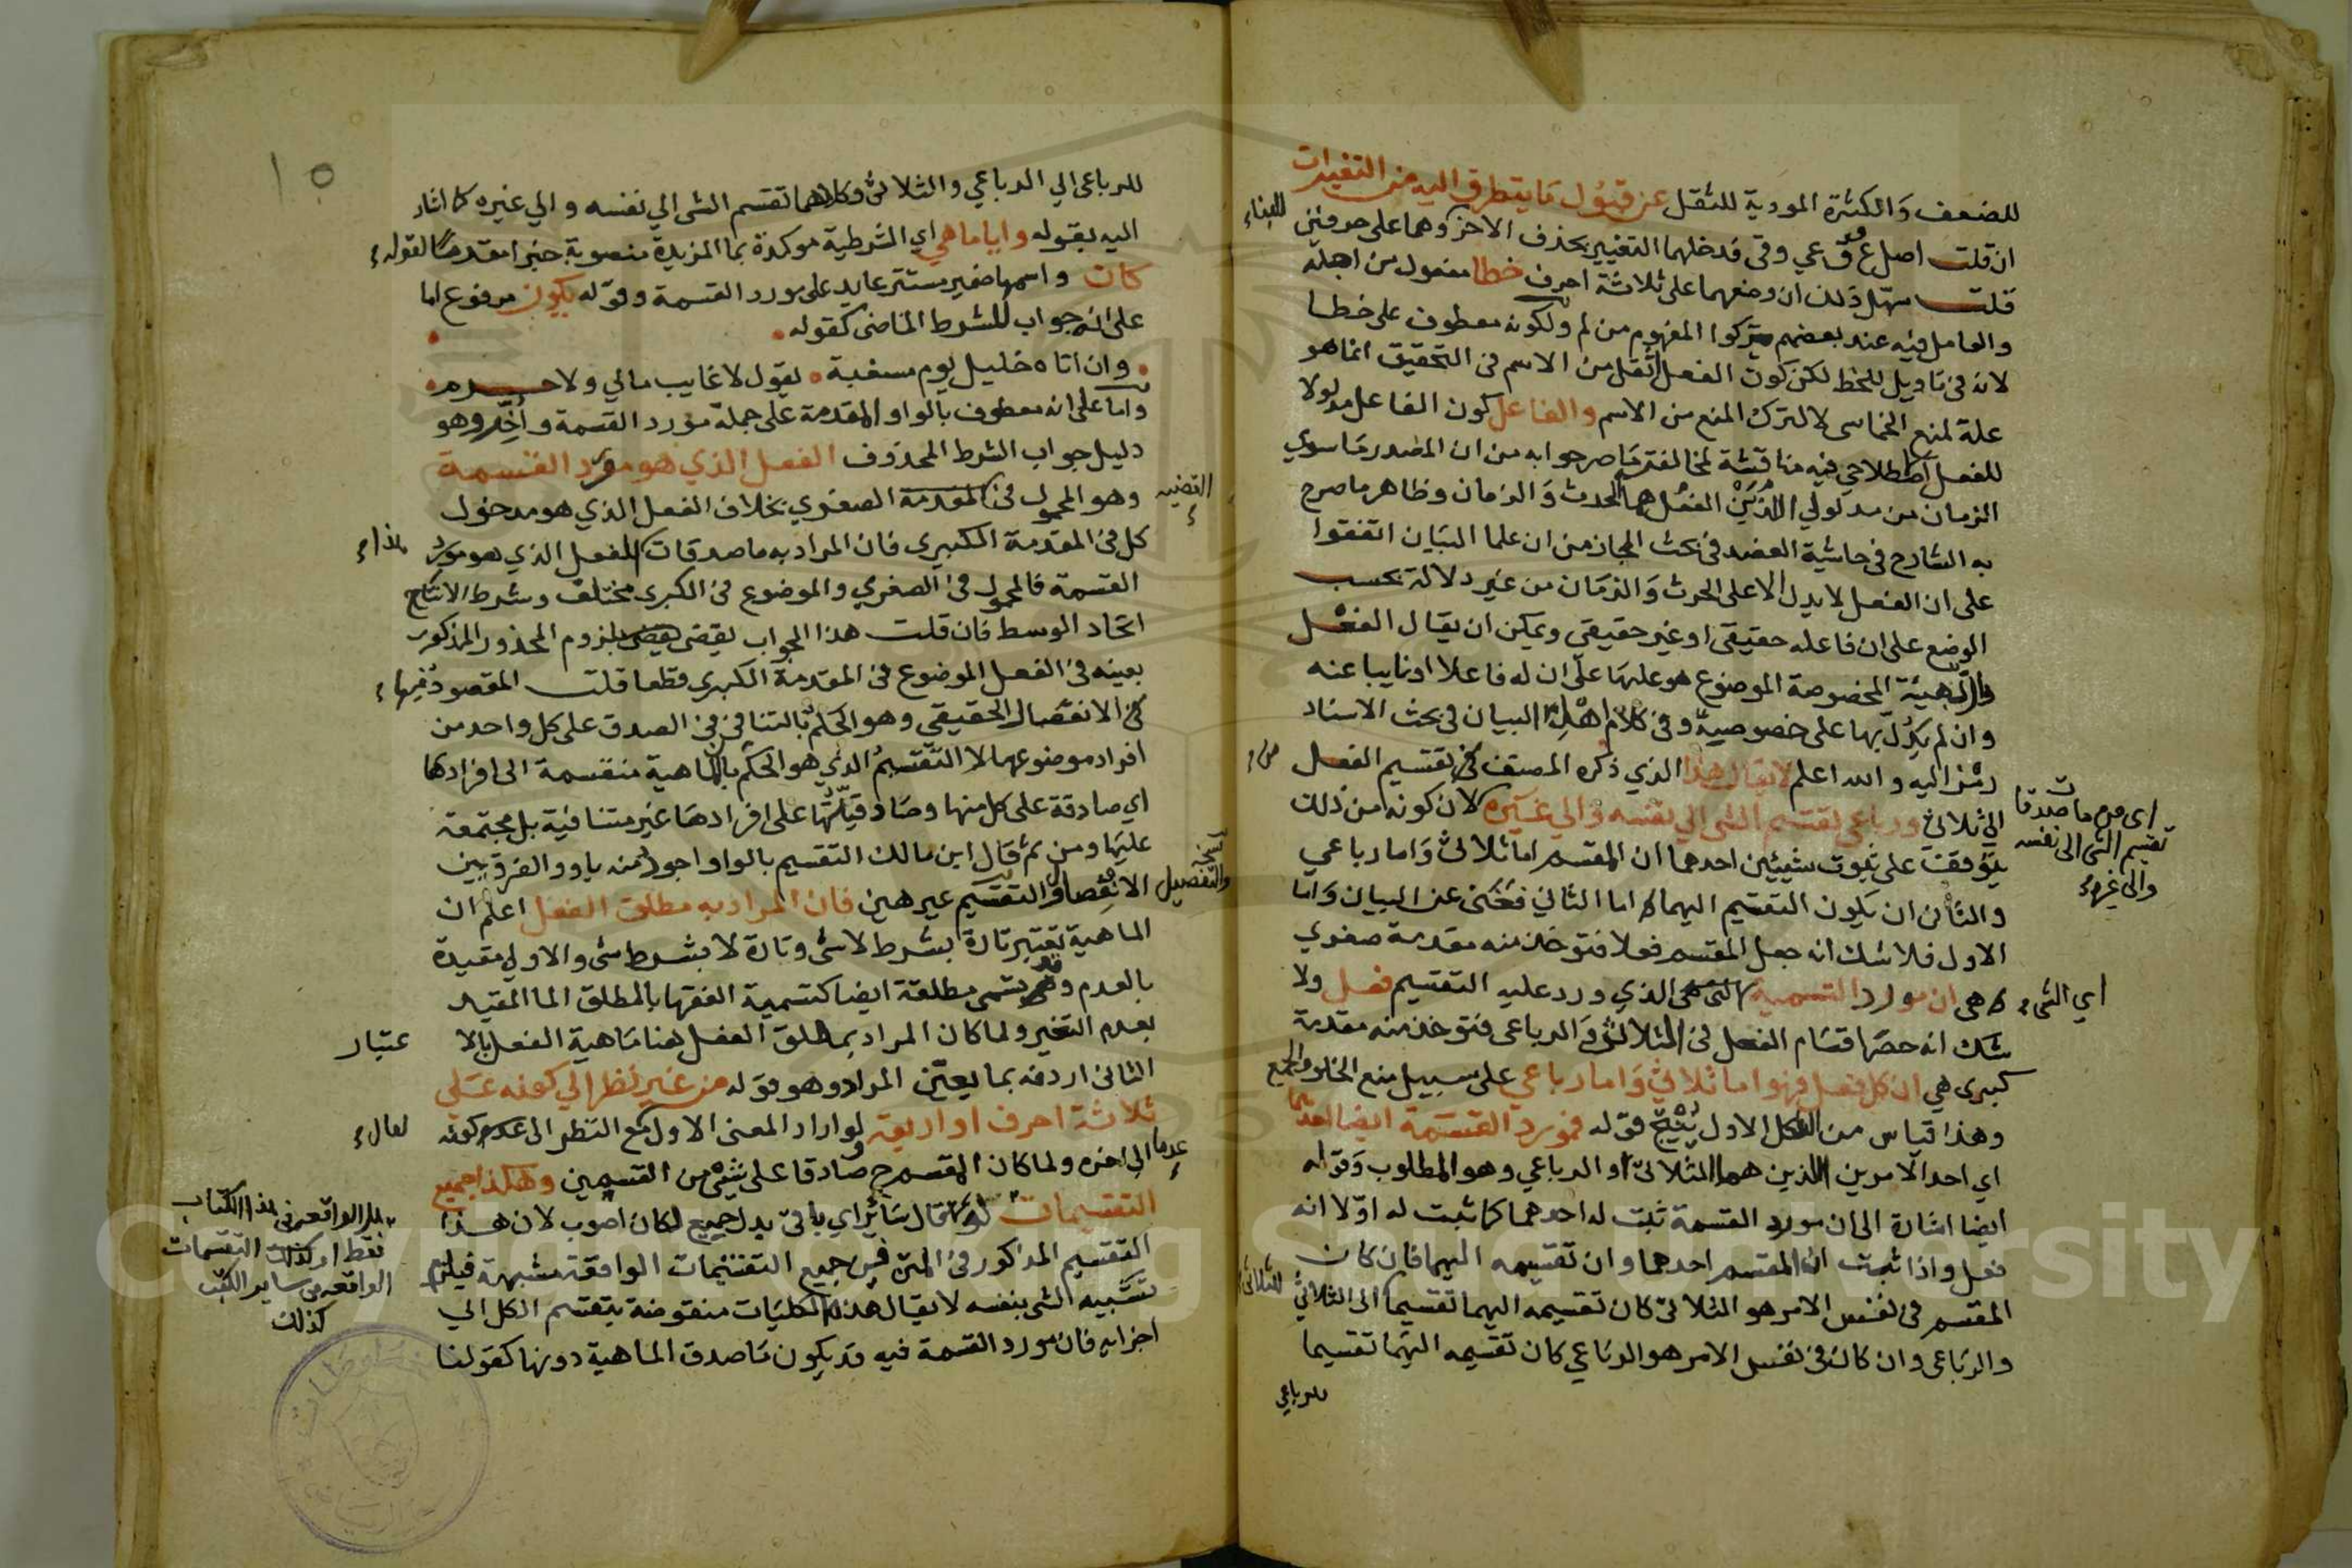 للضعف والكثرة المودية للثقل عن قبول ما يتطرق اليه من التغيرات
ان قلت اصل ع وق عي وقى قد خلهما التغيير بحذف الاخر وهما على حرفين
للبناء
قلت سهل ذلك ان وضعهما على ثلاثة احرف خطا مفعول من اجله
والعامل فيه عند بعضهم تركوا المفهوم من لم ولكونه معطوف على خطا
لانه في تاويل للخط لكن كون الفعل اثقل من الاسم في التحقيق انما هو
علة لمنع الخماسى لا لترك المنع من الاسم والفاعل كون الفاعل مدلولا
للفعل اصطلاحي فيه مناقشة لمخالفته ما صر جوابه من ان المصدر ما سوي
الزمان من مدلولي الذين الفعل هما الحدث والزمان وظاهر ما صرح
به الشارح في حاشية العضد في بحث المجاز من ان علما البيان اتفقوا
على ان الفعل لا يدل الا على الحدث والزمان من غير دلالة بحسب
الوضع على ان فاعله حقيقي او غير حقيقي ويمكن ان يقال الفعل
الهيئة المخصوصة الموضوع هو عليها على ان له فاعلا او نايبا عنه
وان لم يدل بها على خصوصية وفي كلام اهل البيان في بحث الاسناد
رمز اليه والله اعلم لا يقال هذا الذي ذكره المصنف في تقسيم الفعل
الي ثلاثي ورباعي تقسيم الشى الي نفسه والي غيره لان كونه من ذلك
اى من ما صدقات
تقسيم الشى الى نفسه
والى غيره
يتوقف على ثبوت شيئين احدهما ان المقسم اما ثلاثى واما رباعي
والثاني ان يكون التقسيم اليهما اما الثاني فغنى عن البيان واما
الاول فلا شك انه جعل المقسم فعلا فتوخذ منه مقدمة صغري
هى ان مورد القسمة الذي ورد عليه التقسيم فعل ولا
اي الشى
شك انه حصر اقسام الفعل في الثلاثي والرباعى فتوخذ منه مقدمة
كبرى هي ان كل فعل فهو اما ثلاثي واما رباعي على سبيل منع الخلو والجمع
وهذا قياس من الشكل الاول ينتج قوله فمورد القسمة ايضا احدهما
اي احد الامرين الذين هما الثلاثي او الرباعي وهو المطلوب وقوله
ايضا اشارة الى ان مورد القسمة ثبت له احدهما كما ثبت له اولا انه
فعل واذا ثبت ان المقسم احدهما وان تقسيمه اليهما فان كان
المقسم في نفس الامر هو الثلاثي كان تقسيمه اليهما تقسيما الى الثلاثي
للثلاثي
والرباعى وان كان في نفس الامر هو الرباعي كان تقسيمه اليهما تقسيما
للرباعي
١٥
للرباعى الي الرباعي والثلاثي وكلاهما تقسم الشى الي نفسه والي غيره كما اشار
اليه بقوله وايا ما هي اي الشرطية موكدة بما المزيدة منصوبة خبرا مقدما لقوله
كان واسمها ضمير مستتر عايد على مورد القسمة وقوله يكون مرفوع اما
على انه جواب للشرط الماضى كقوله
وان اتاه خليل يوم مسغبة يقول لا غايب مالي ولا حرم
واما على انه معطوف بالواو المقدمة على جملة مورد القسمة واخر وهو
دليل جواب الشرط المحذوف الفعل الذي هو مورد القسمة
وهو المحمول في المقدمة الصغري بخلاف الفعل الذي هو مدخول
القضيه
كل في المقدمة الكبري فان المراد به ما صدقات الفعل الذي هو مورد
هذا
القسمة فالمحمول في الصغري والموضوع في الكبرى مختلف وشرط الانتاج
اتحاد الوسط فان قلت هذا الجواب يقتضى لزوم المحذور المذكور
بعينه في الفعل الموضوع في المقدمة الكبري قطعا قلت المقصود فيها
في الانفصال الحقيقي وهو الحكم بالتنافي في الصدق على كل واحد من
افراد موضوعهما لا التقسيم الذي هو الحكم بالماهية منقسمة الى افرادها
اي صادقة على كل منها وصادقيتها على افرادها غير متنافية بل مجتمعة
عليها ومن ثم قال ابن مالك التقسيم بالواو اجود منه باو والفرق بين
الانفصال والتقسيم غير هين فان المراد به مطلق الفعل اعلم ان
نسخه
والتفصيل
الماهية تعتبر تارة بشرط لا شى وتارة لا بشرط شى والاولى مقيدة
بالعدم وقد تسمى مطلقة ايضا كتسمية الفقها بالمطلق الما المقيد
بعدم التغير ولما كان المراد بمطلق الفعل هنا ماهية الفعل بالا
عتبار
الثانى اردفه بما يعين المراد وهو قوله من غير نظر الي كونه على
ثلاثة احرف او اربعة لو اراد المعنى الاول مع النظر الى عدم كونه
لقال
الى اخره ولما كان المقسم ح صادقا على شيء من القسمين وهكذا جميع
التقسيمات لو قال سائر اي باقي بدل جميع لكان اصوب لان هذا
التقسيم المذكور في المتن فمن جميع التقسيمات الواقعة مشبهة فيلزم
هل الواقعه في هذا الكتاب
فقط او كذلك التقسيمات
الواقعه في ساير الكتب
كذلك
تشبيه الشى بنفسه لا يقال هذه الكليات منقوضة بتقسم الكل الي
اجزايه فان مورد القسمة فيه قد يكون ما صدق الماهية دونها كقولنا
Copyright © King Saud University